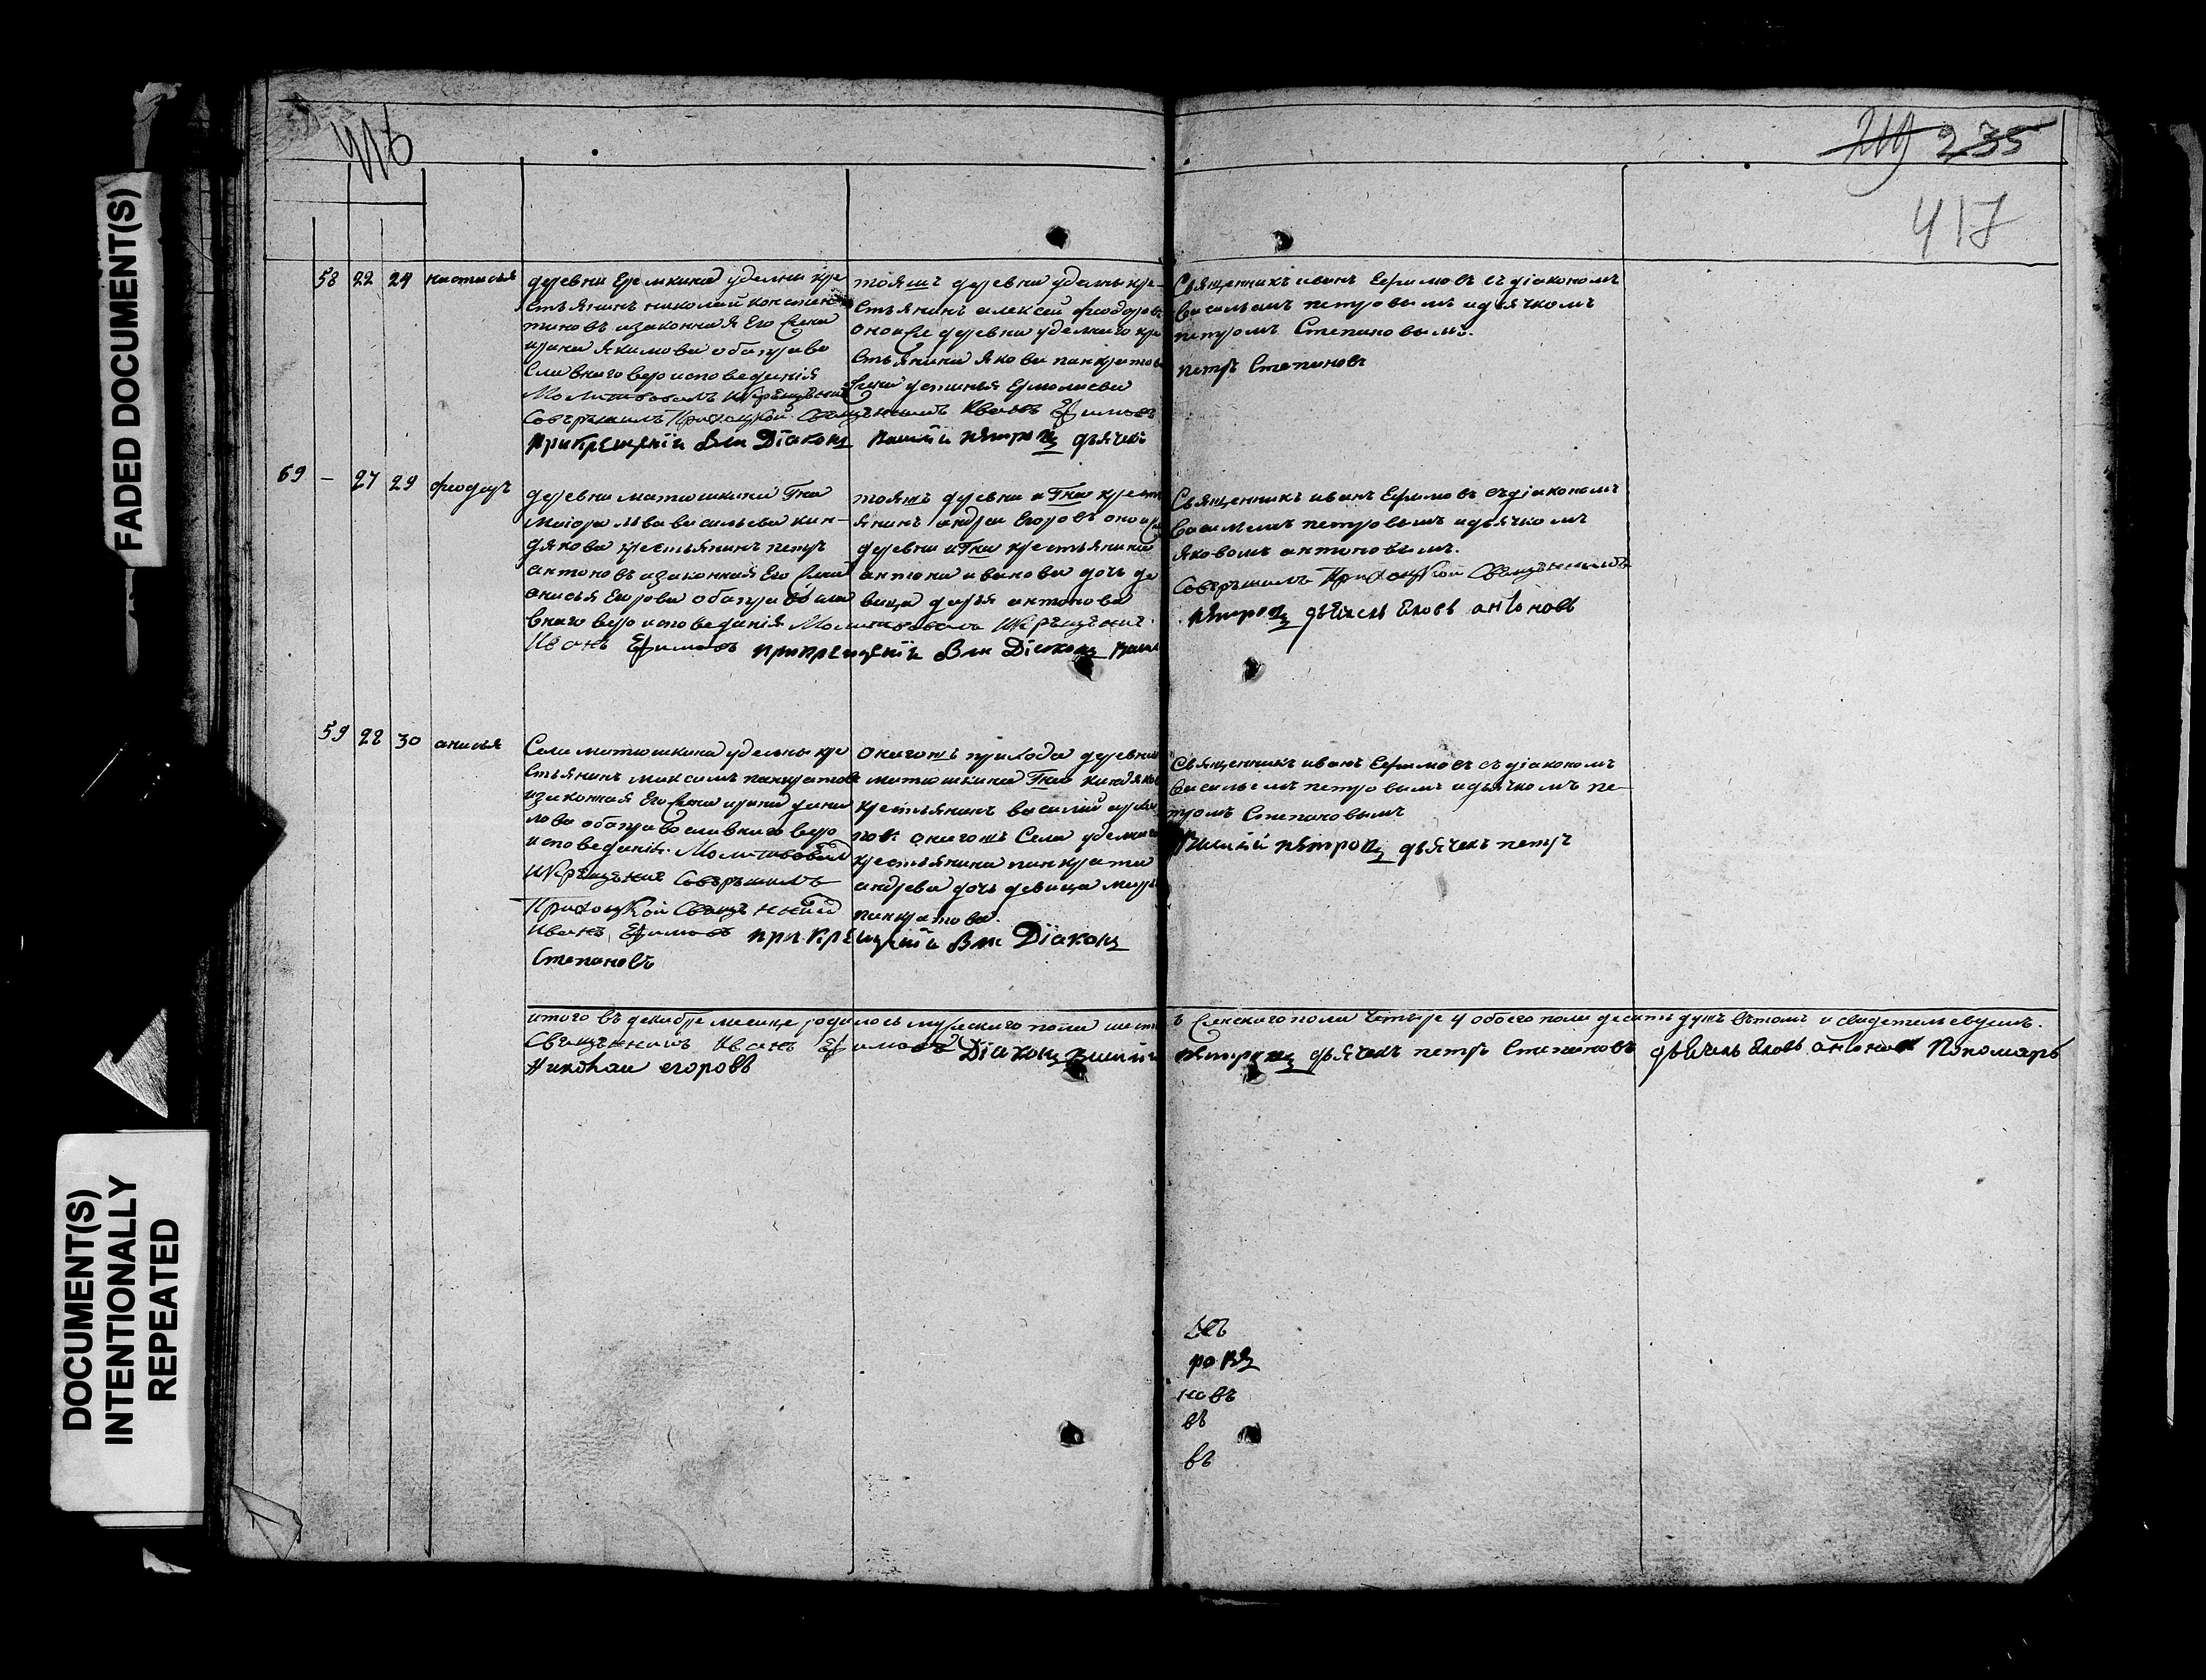 416
219 235
417
FADED DOCUMENT(S)
DOCUMENT(S)
INTENTIONALLY
REPEATED
58 22 24 настасья
деревни Еремкина уделны кре
стьянинъ николай констан
тиновъ изаконная Его жена
ирина якимова оба право
славнаго вероисповеданiя
Молитвовалъ икрѣщенiе
Совѣршилъ Приходской Священникъ Иванъ Ефимовъ
прикрещенiи были Дiаконъ
тояжъ деревни уделны кре-
стьянинъ алексей феодоровъ
оноиже деревни уделнаго кре
стьянина якова панкратова
жена устинья Ермолаева
Священникъ иванъ Ефимовъ съ дiакономъ
васильемъ петровымъ идьячкомъ
петромъ Степановымъ.
петръ Степановъ
69 – 27 29 феодоръ
деревни матюшкина Гна
маiора льва васильева кин-
дякова крестьянинъ петръ
антоновъ изаконная Его жена
анисья Егорова оба правосла
внаго вероисповеданiя Молитвовалъ Икрѣщенiе
Иванъ Ефимовъ прикрещенiи были Дiаконъ
тояжъ деревни иГна кресть
янинъ андреи Егоровъ оноиже
деревни иГна крестьянина
антона иванова дочь де
вица дарья антонова
Священникъ иванъ Ефимовъ съдiакономъ
васильемъ петровымъ идьячкомъ
яковомъ антоновымъ.
Совѣршилъ Приходской Священникъ
пѣтровъ дьячекъ Яковъ антоновъ
59 28 30 анисья
Села матюшкина уделны кре
стьянинъ максимъ панкратовъ
изаконная Его жена ирина дани
лова оба православнаго веро
исповеданiя. Молитвовалъ
икрѣщенiе Совѣршилъ
Приходской Священникъ
Иванъ Ефимовъ прикрещенiи были Дiаконъ
Степановъ
онагожъ прихода деревни
матюшкина Гна киндякова
крестьянинъ василий
онагожъ Села уделнаго
крестьянина панкрата
андреева дочь девица
панкратова.
Священникъ иванъ Ефимовъ съ дiакономъ
васильемъ петровымъ идьячкомъ пе-
тромъ Степановымъ
пѣтровъ дьячекъ петръ
итого въ декабре месяце родилось мужескаго пола шесть женскаго пола четыре и обоего пола десять душъ вътомъ и свидетельствуемъ.
Священникъ Иванъ Ефимовъ Дiаконъ Василiй пѣтровъ дьячекъ петръ Степановъ дьячекъ Яковъ антоновъ Пономарь
Николаи егоровъ
ровъ
новъ
въ
въ